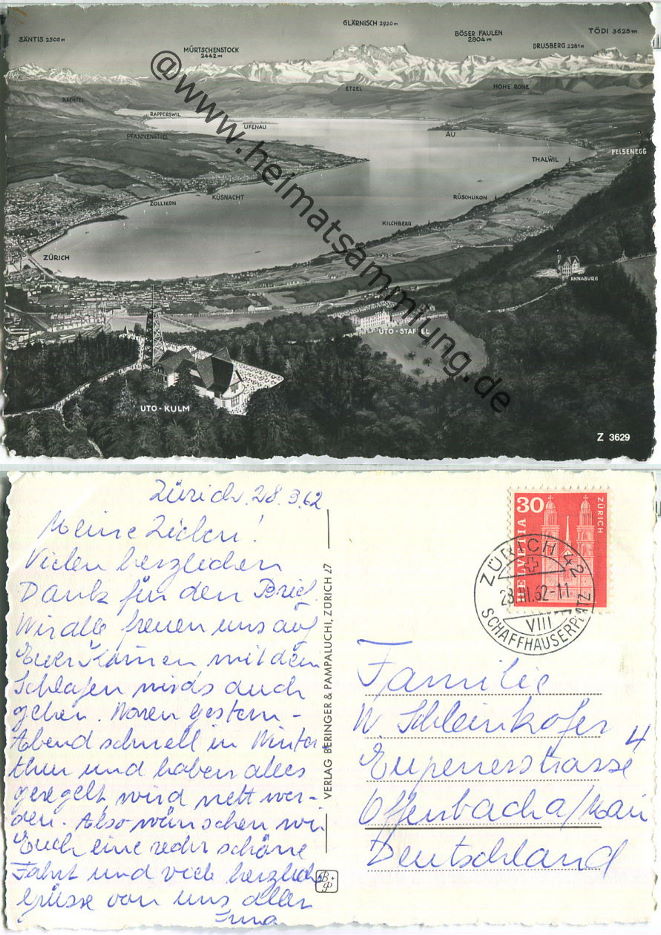 GLÄRNISCH 2920 m
SÄNTIS 2508 m
BÖSER FAULEN
2804 m
TÖDI 3623 m
MÜRTSCHENSTOCK
2442 m
DRUSBERG 2281 m
ETZEL
HOHE RONE
BACHTEL
RAPPERSWIL
UFENAU
AU
PFANNENSTIEL
THALWIL
FELSENEGG
ZOLLIKON
KÜSNACHT
RÜSCHLIKON
KILCHBERG
ZÜRICH
ANNABURG
UTO-STAFFEL
UTO-KULM
Z 3629
@www.heimatsammlung.de
Zürich, 28.3.62
Meine Lieben!
Vielen herzlichen
Dank für den Brief.
Wir alle freuen uns auf
Euer Kommen mit dem
Schlafen wirds auch
gehen. Waren gestern-
Abend schnell in Winter
thur und haben alles
geregelt wird nett wer-
den. Also wünschen wir
Euch eine recht schöne
Fahrt und viele herzlich
Grüsse von uns allen
Irma
VERLAG BERINGER & PAMPALUCHI, ZÜRICH 47
B+P
30
HELVETIA
ZÜRICH
ZÜRICH 42
28.III.62-11
VIII
SCHAFFHAUSERPLATZ
Familie
W. Schleinkofer
Eupenerstrasse 4
Offenbach a/Main
Deutschland